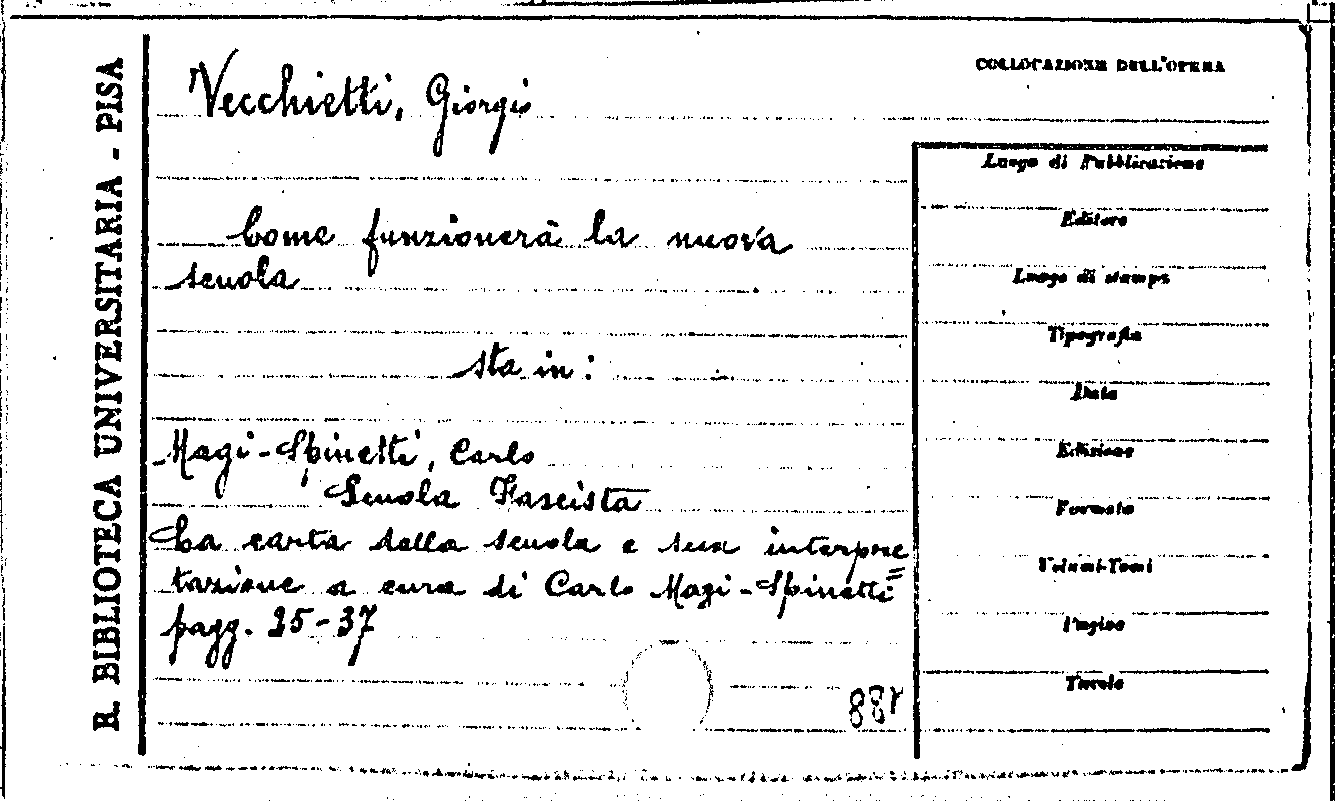 R. BIBLIOTECA UNIVERSITARIA - PISA
COLLOCAZIONE DELL'OPERA
Vecchietti, Giorgio
Come funzionerà la nuova
scuola
sta in:
Magi-Spinetti, Carlo
Scuola Fascista
La carta della scuola e sua interpre=
tazione a cura di Carlo Magi-Spinetti
pagg. 25-37
Luogo di Pubblicazione
Editore
Luogo di stampa
Tipografia
Data
Edizione
Formato
Volumi-Tomi
Pagine
Tavole